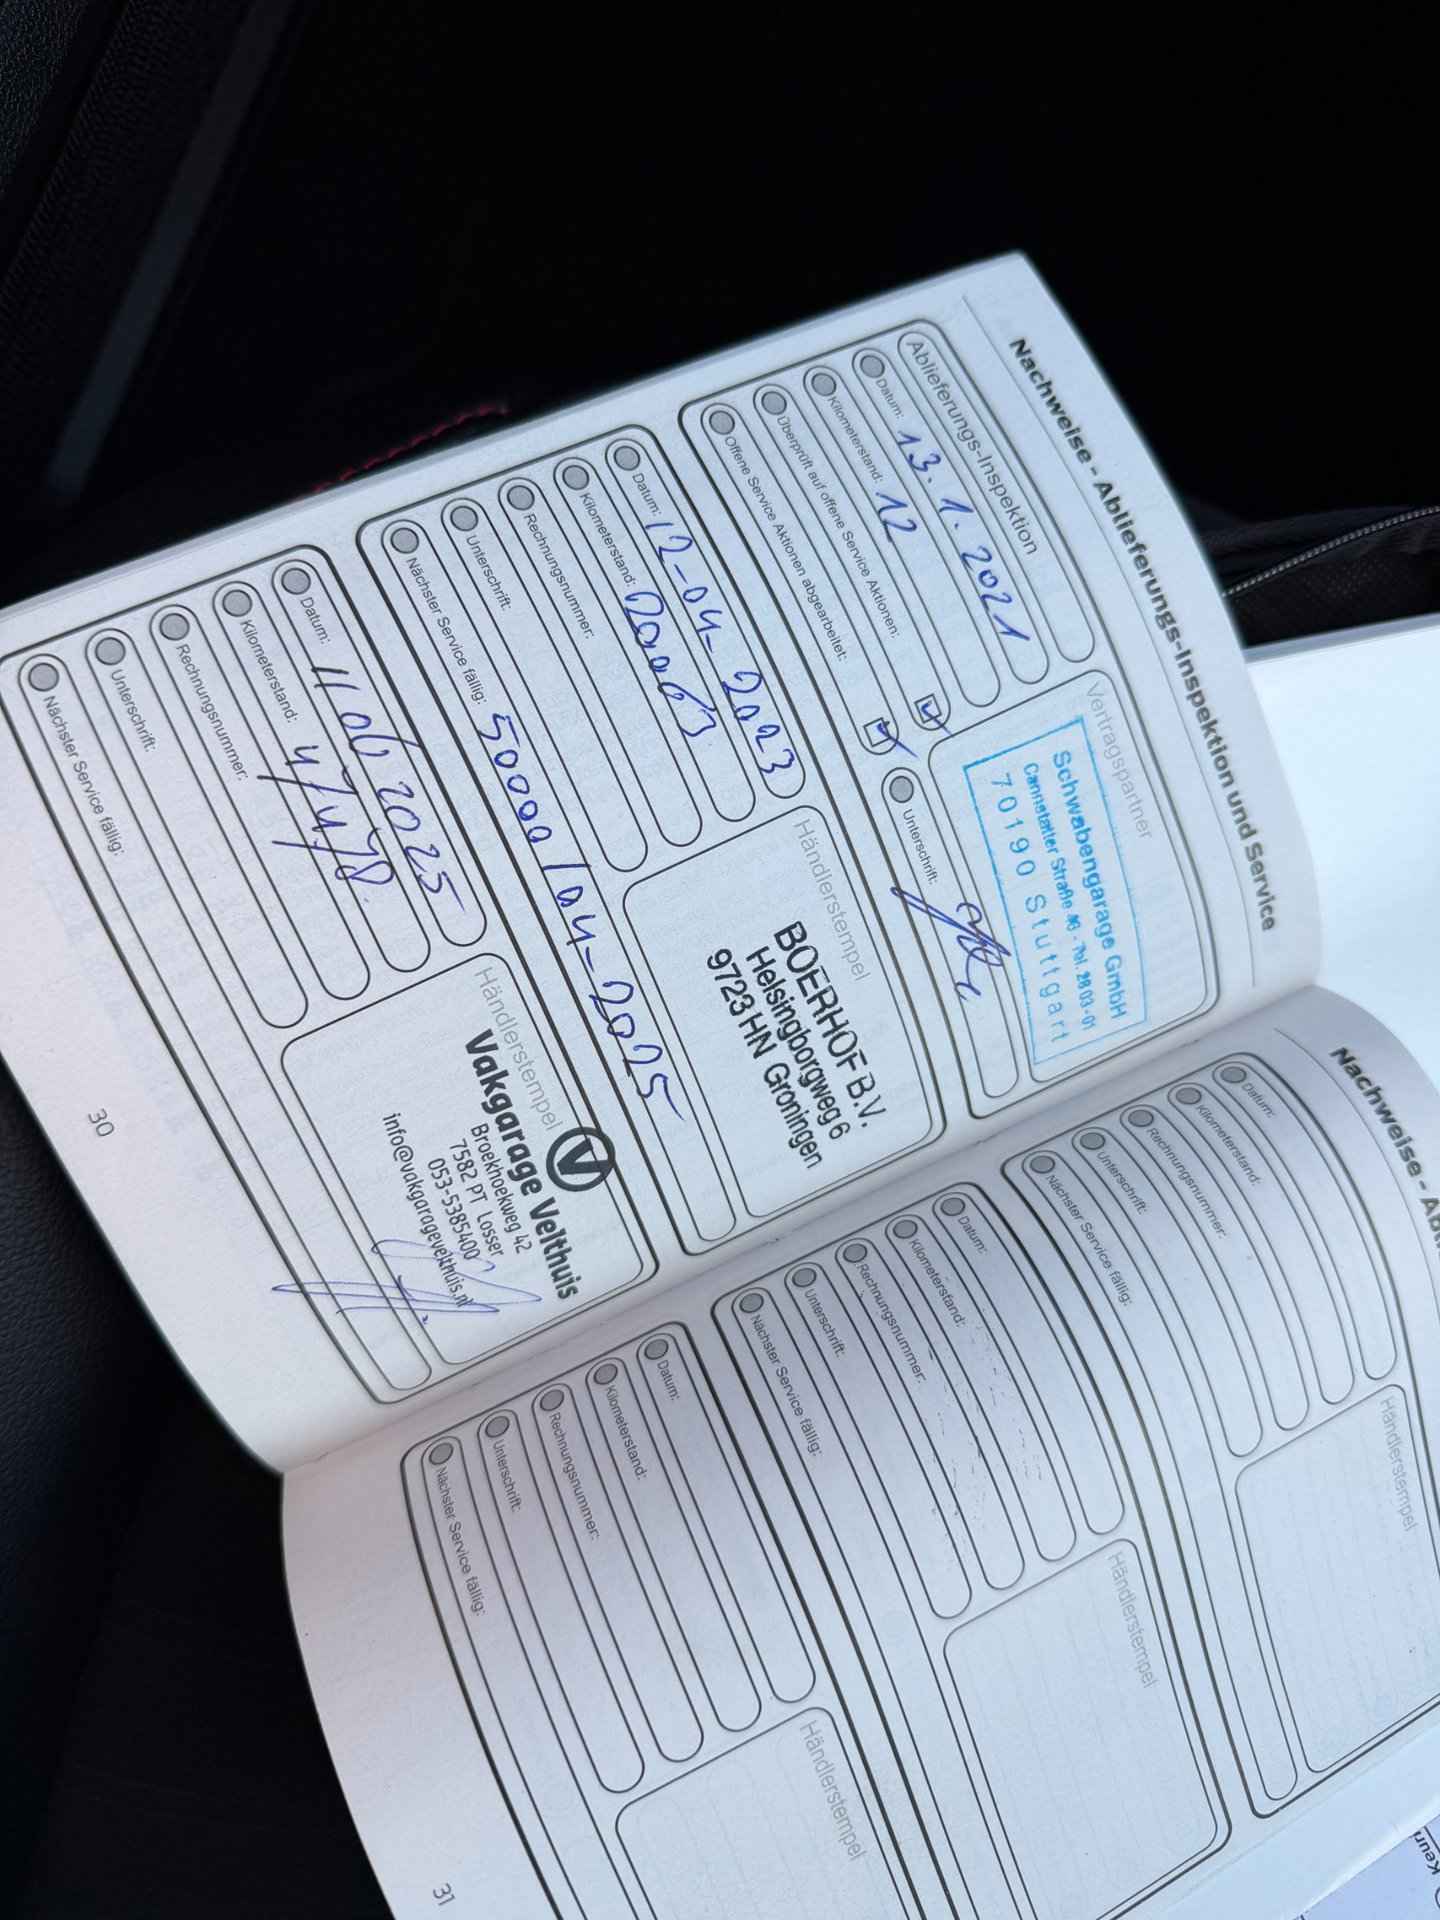 Nachweise - Ablieferungs-Inspektion und Service
Ablieferungs-Inspektion
Datum: 13.1.2021
Kilometerstand: 12
Überprüft auf offene Service Aktionen:
Offene Service Aktionen abgearbeitet:
Vertragspartner
Schwabengarage GmbH
Cannstatter Straße 46 - Tel. 28 03-01
70190 Stuttgart
Unterschrift:
Datum: 12-04-2023
Kilometerstand: 20063
Rechnungsnummer:
Unterschrift:
Nächster Service fällig: 50000/04-2025
Händlerstempel
BOERHOF B.V.
Helsingborgweg 6
9723 HN Groningen
Datum: 11/06 2025
Kilometerstand:
Rechnungsnummer:
Unterschrift:
Nächster Service fällig:
Händlerstempel
V
Vakgarage Velthuis
Broekhoekweg 42
7582 PT Losser
053-5385400
info@vakgaragevelthuis.nl
30
Nachweise -
Datum:
Kilometerstand:
Rechnungsnummer:
Unterschrift:
Nächster Service fällig:
Händlerstempel
Datum:
Kilometerstand:
Rechnungsnummer:
Unterschrift:
Nächster Service fällig:
Händlerstempel
Datum:
Kilometerstand:
Rechnungsnummer:
Unterschrift:
Nächster Service fällig:
Händlerstempel
31